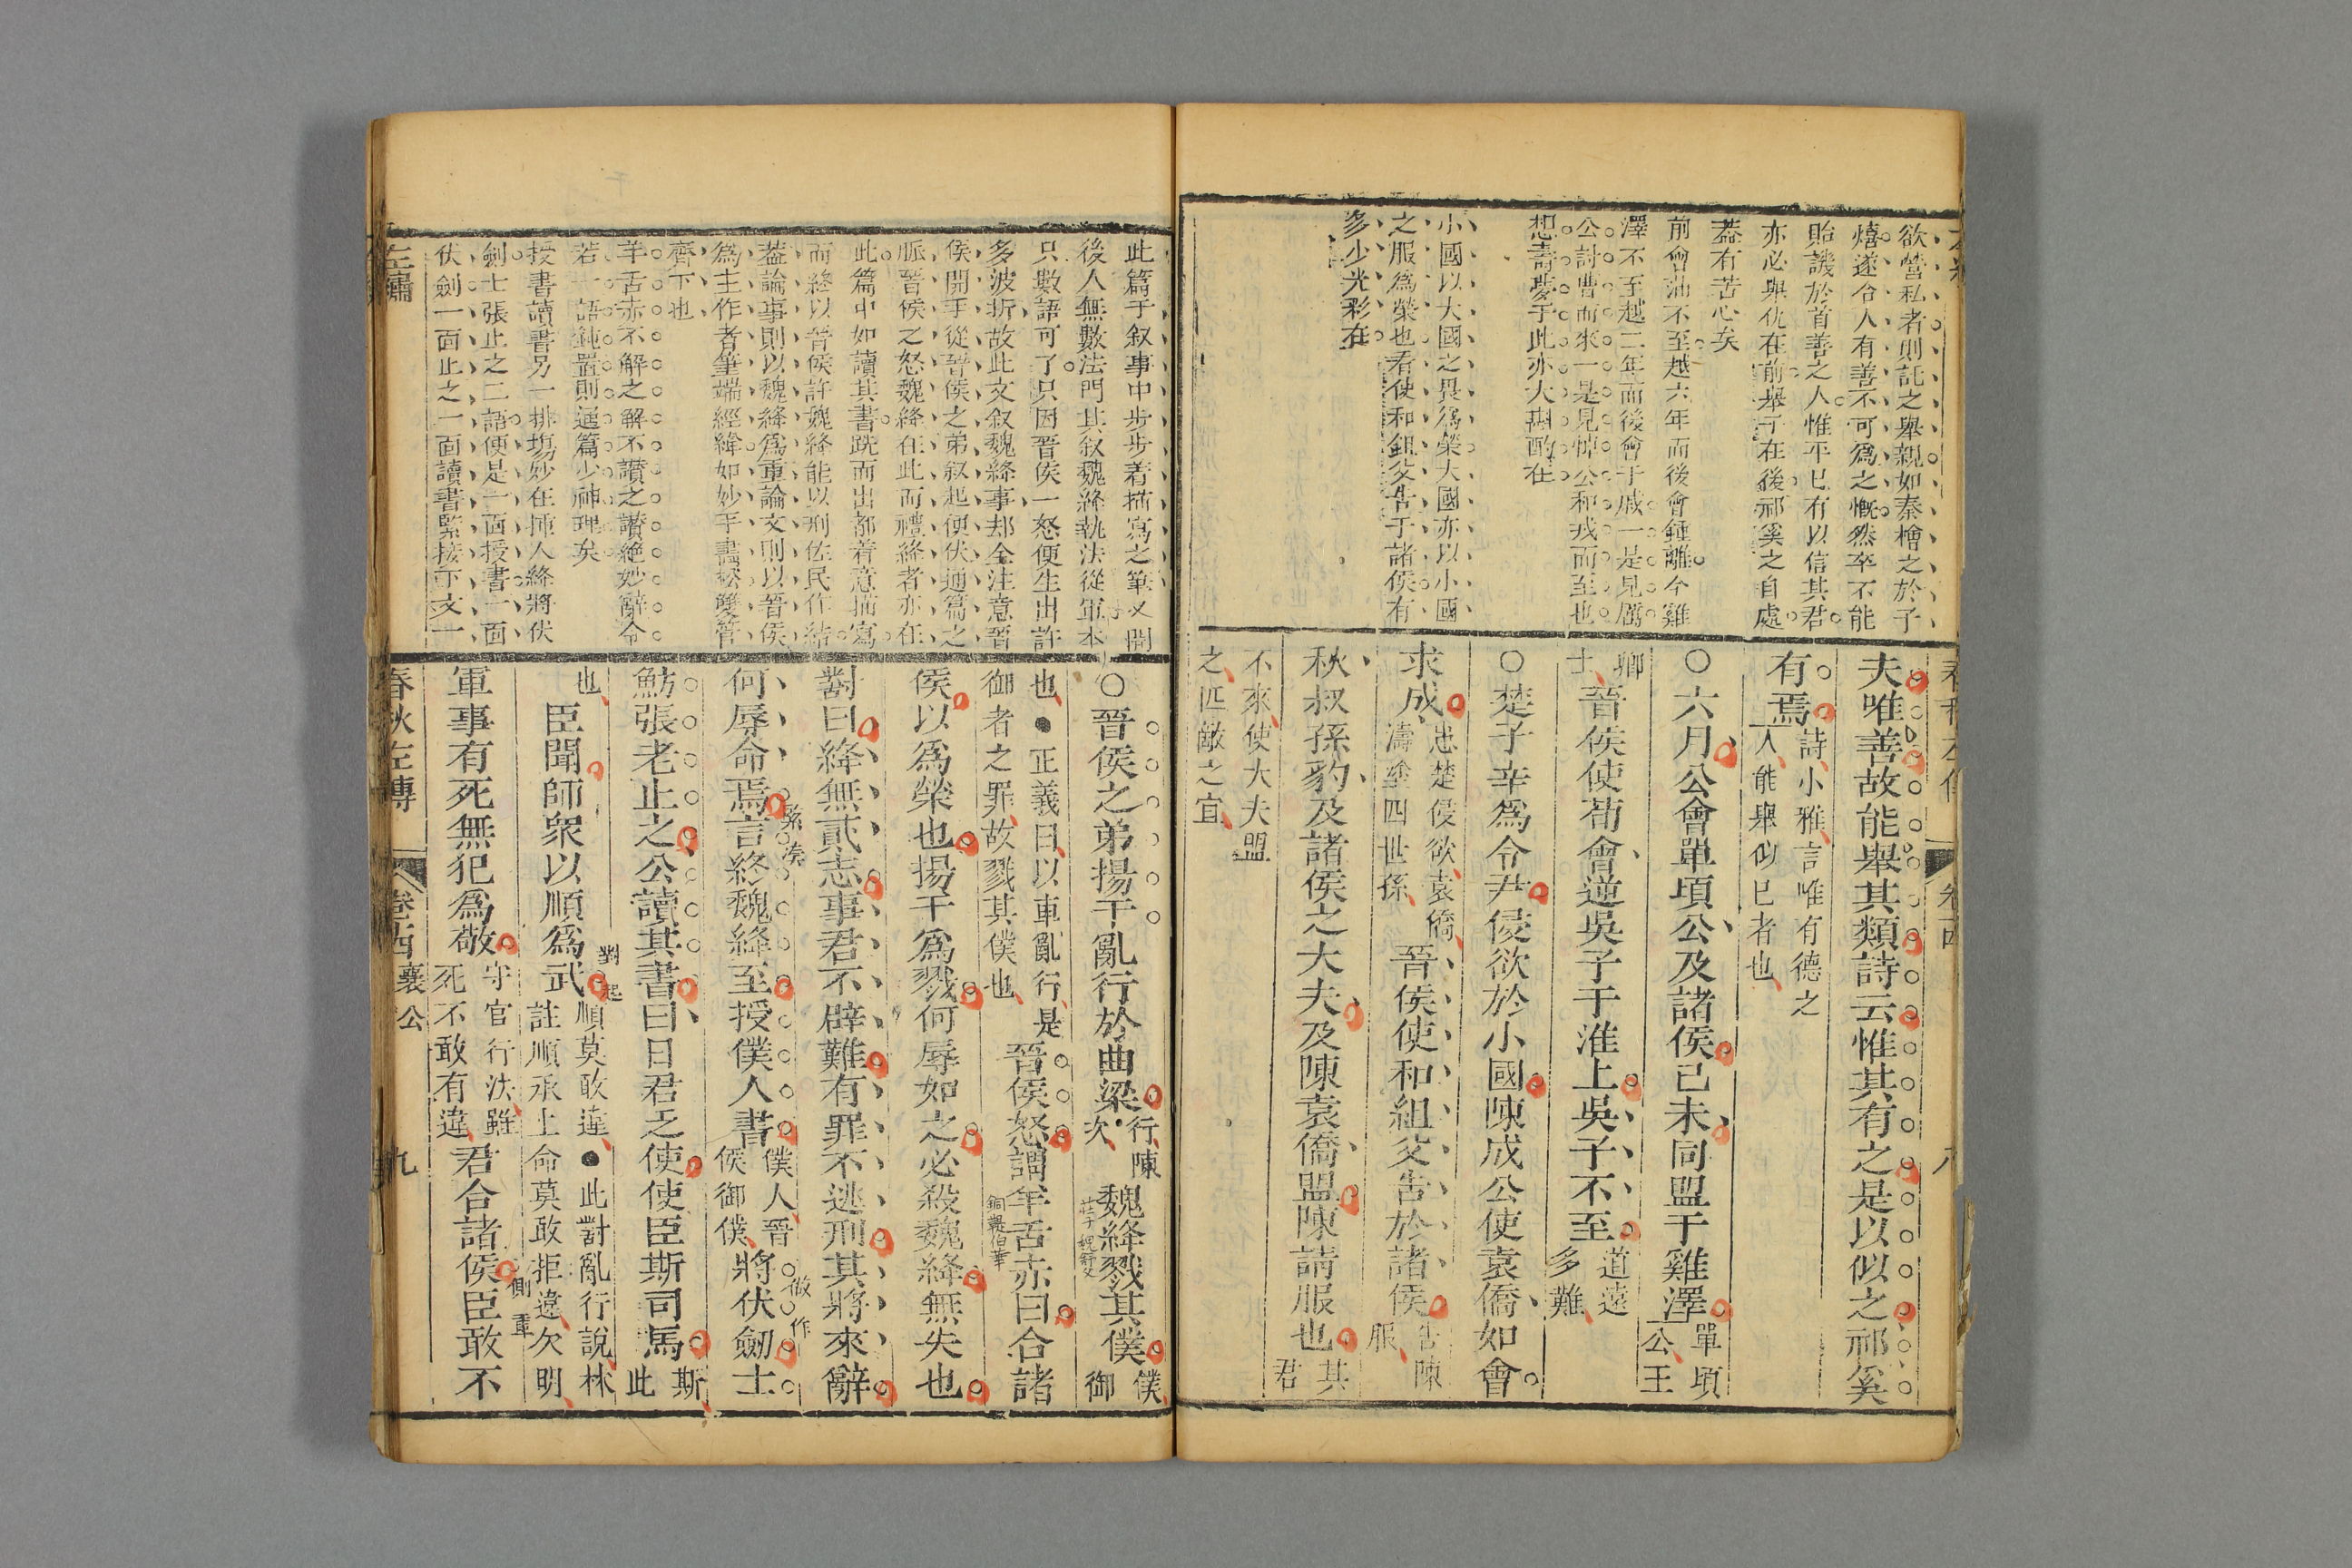 欲營私者則託之舉親如秦檜之於子
熺遂令人有善不可爲之慨然卒不能
貽譏於首善之人惟平已有以信其君
亦必舉仇在前舉子在後祁奚之自處
蓋有苦心矣
前會油不至越六年而後會鍾離今雞
澤不至越二年而後會于戚一是見厲
公討曹而來一是見悼公和戎而至也
想壽夢于此亦大斟酌在
小國以大國之畏爲榮大國亦以小國
之服爲榮也看使和組父告于諸侯有
多少光彩在
夫唯善故能舉其類詩云惟其有之是以似之祁奚
有焉
詩小雅言唯有德之
人能舉似已者也
○六月公會單頃公及諸侯己未同盟于雞澤
單頃
公王
卿
士
晉侯使荀會逆吳子于淮上吳子不至
道遠
多難
○楚子辛爲令尹侵欲於小國陳成公使袁僑如會
求成
患楚侵欲袁僑
濤塗四世孫
晉侯使和組父告於諸侯
告陳
服
秋叔孫豹及諸侯之大夫及陳袁僑盟陳請服也
其
君
不來使大夫盟
之匹敵之宜
此篇于叙事中步步着描寫之筆又開
後人無數法門其叙魏絳執法從軍本
只數語可了只因晉侯一怒便生出許
多波折故此文叙魏絳事却全注意晉
侯開手從晉侯之弟叙起便伏通篇之
脈晉侯之怒魏絳在此而禮絳者亦在
此篇中如讀其書跣而出都着意描寫
而終以晉侯許魏絳能以刑佐民作結
蓋論事則以魏絳爲重論文則以晉侯
爲主作者筆端經緯如妙手畫松雙管
齊下也
羊舌赤不解之解不讃之讃絶妙辭令
若一語鈍置則通篇少神理矣
授書讀書另一排塲妙在揷入絳將伏
劍士張止之二語便是一面授書一面
伏劍一面止之一面讀書緊接下文一
○晉侯之弟揚干亂行於曲梁
行陳
次
魏絳戮其僕
莊子魏舒父
僕
御
也●正義曰以車亂行是
御者之罪故戮其僕也
晉侯怒謂羊舌赤曰合諸
銅鞮伯華
侯以爲榮也揚干爲戮何辱如之必殺魏絳無失也
對曰絳無貳志事君不辟難有罪不逃刑其將來辭
何辱命焉言終魏絳至授僕人書
緊湊
僕人晉
侯御僕
將伏劒士
做作
魴張老止之公讀其書曰日君乏使使臣斯司馬
斯
此
也
臣聞師衆以順爲武
對起
順莫敢違●此對亂行說林
註順承上命莫敢拒違欠明
軍事有死無犯爲敬
守官行法雖
死不敢有違
君合諸侯臣敢不
側重
左繡
春秋左傳
卷西襄公
九